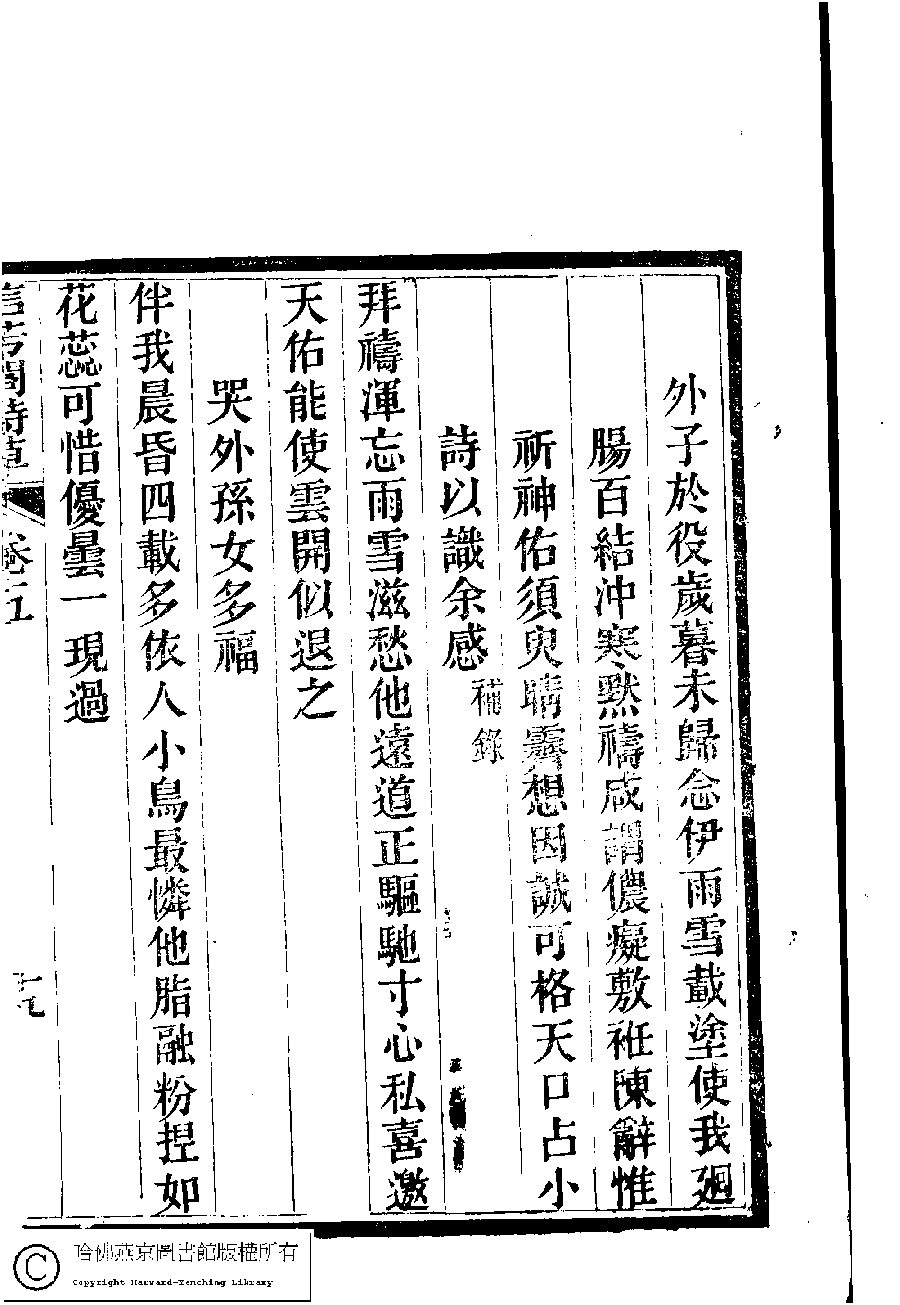 外子於役歲暮未歸念伊雨雪載塗使我廻
腸百結沖寒默禱咸謂儂癡敷衽陳辭惟
祈神佑須臾晴霽想因誠可格天口占小
詩以識余感補錄
拜禱渾忘雨雪滋愁他遠道正驅馳寸心私喜邀
天佑能使雲開似退之
哭外孫女多福
伴我晨昏四載多依人小鳥最憐他脂融粉揑如
花蕊可惜優曇一現過
詩草 卷五
哈佛燕京圖書館版權所有
Copyright Harvard-Yenching Library